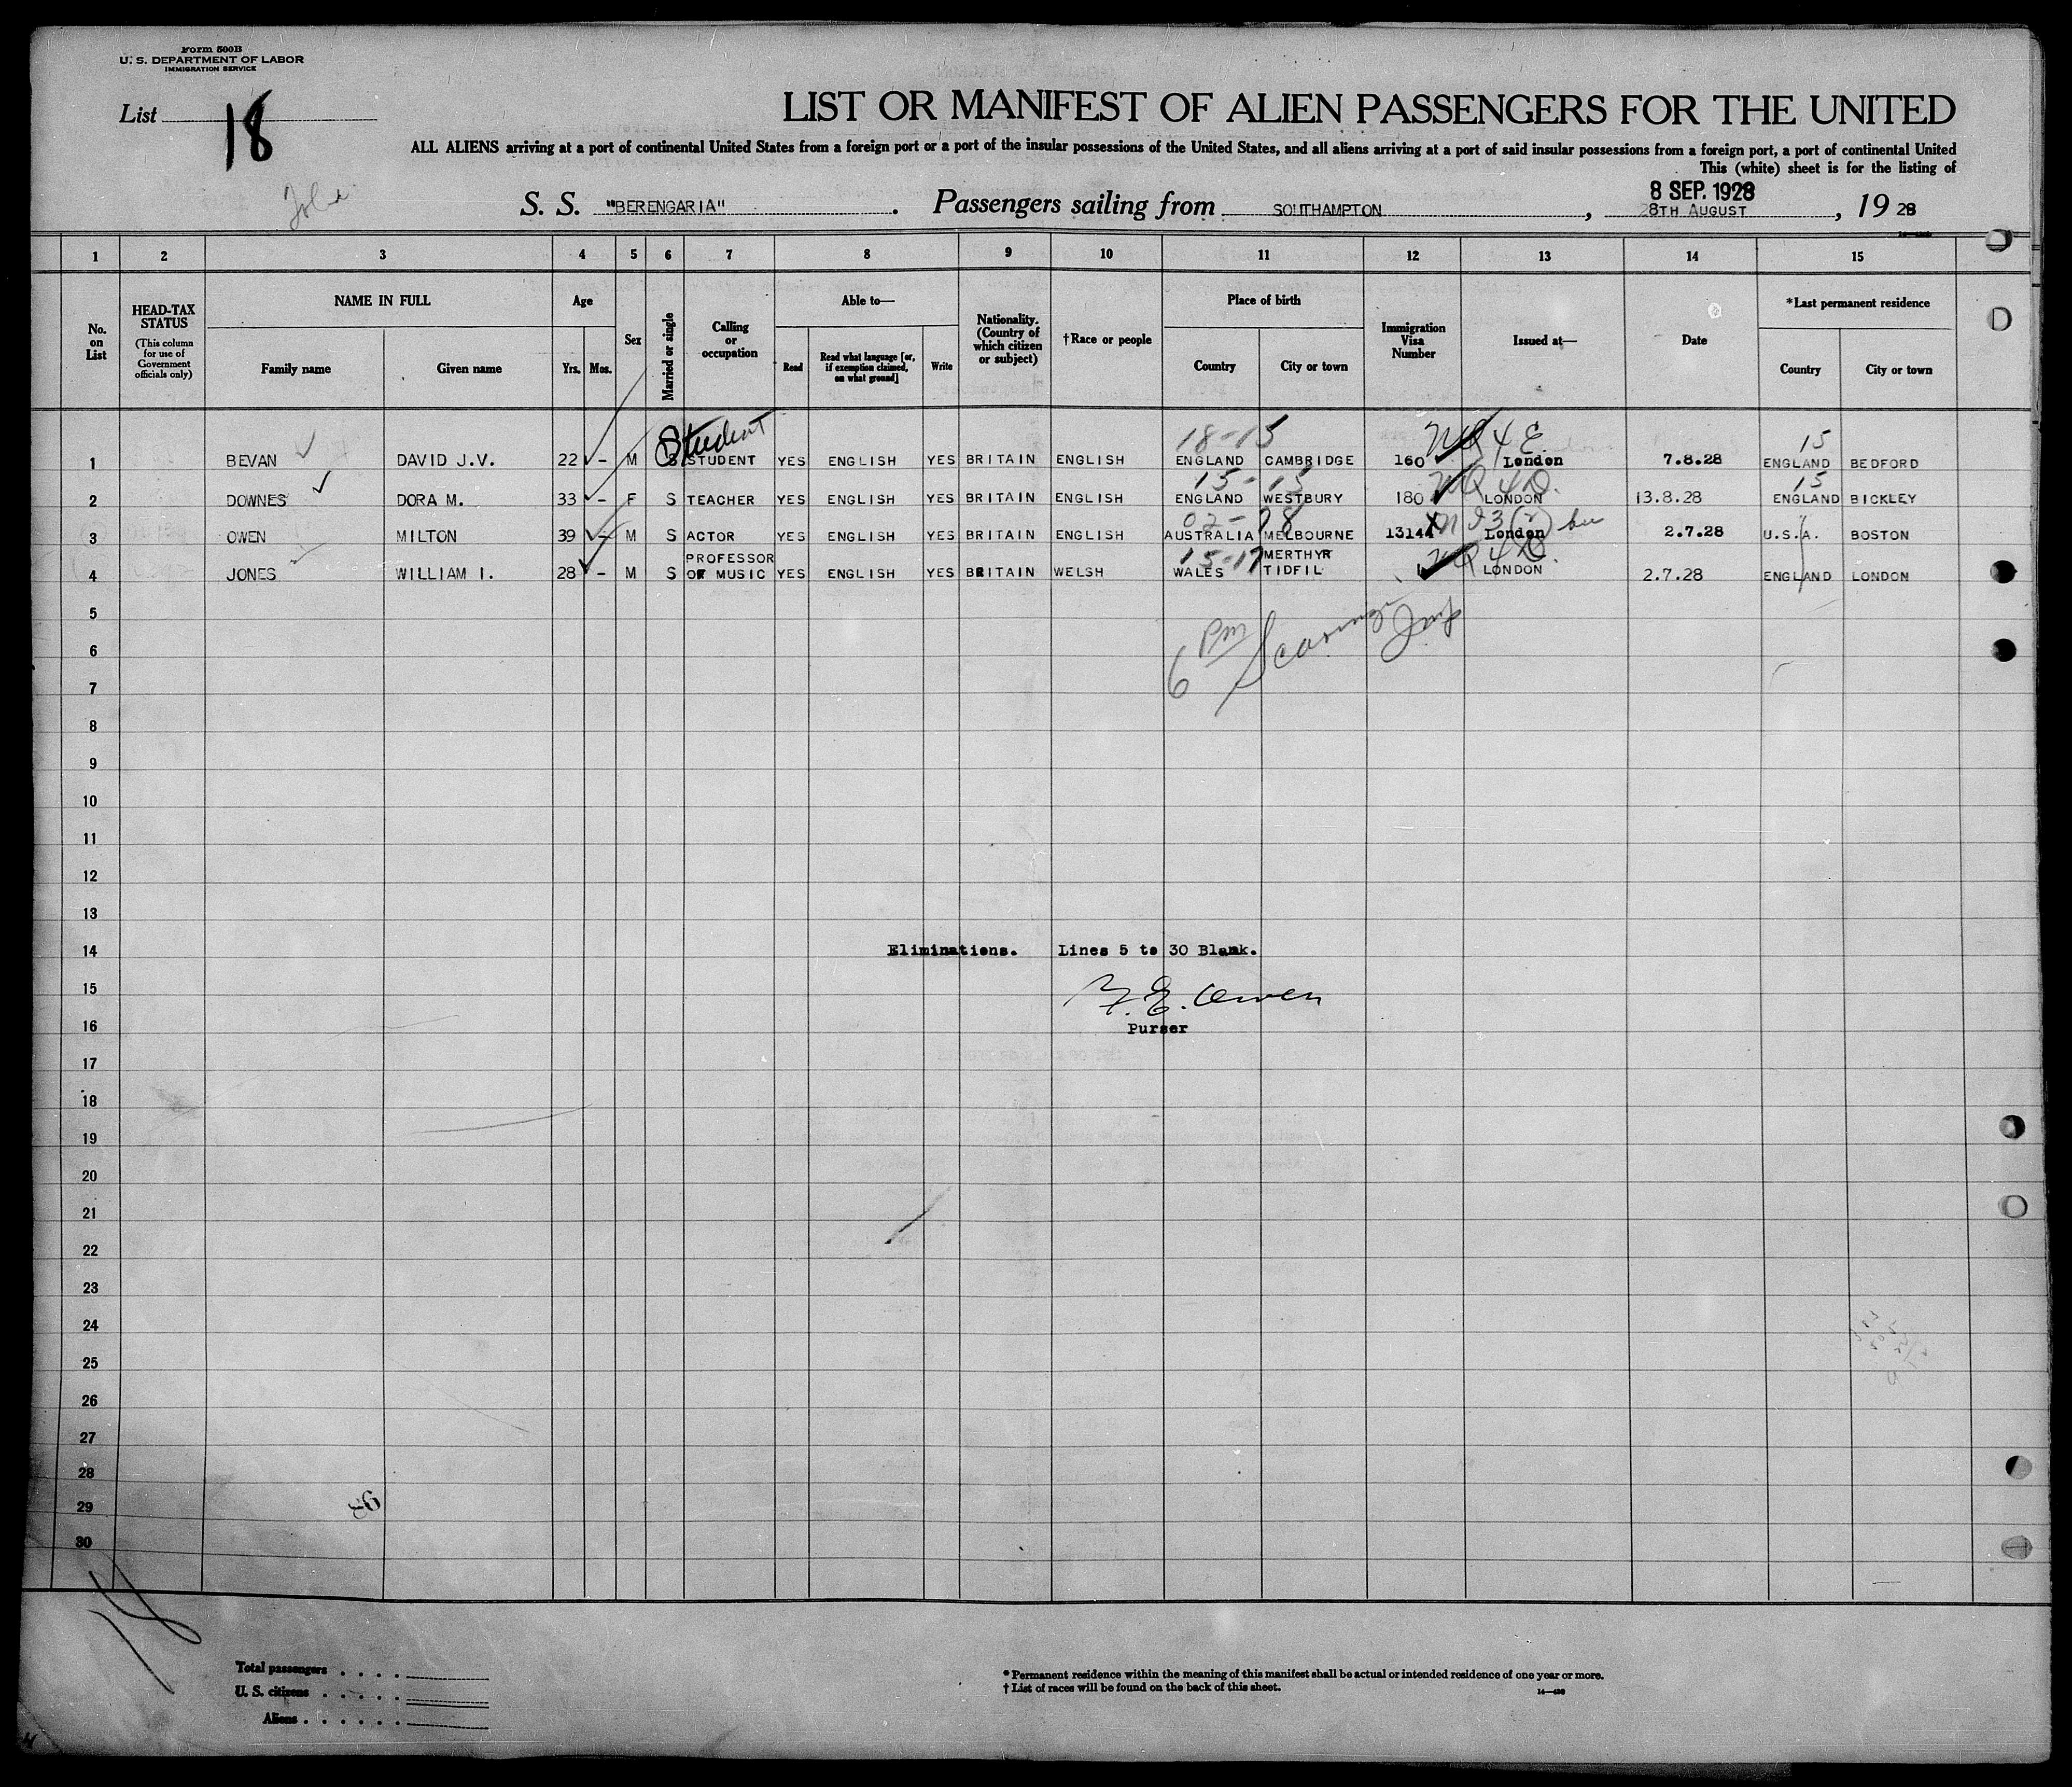 Form 500B
U. S. DEPARTMENT OF LABOR
IMMIGRATION SERVICE
List 18
LIST OR MANIFEST OF ALIEN PASSENGERS FOR THE UNITED
ALL ALIENS arriving at a port of continental United States from a foreign port or a port of the insular possessions of the United States, and all aliens arriving at a port of said insular possessions from a foreign port, a port of continental United
This (white) sheet is for the listing of
S. S. "BERENGARIA". Passengers sailing from SOUTHAMPTON, 28TH AUGUST, 19 28
8 SEP. 1928
1 2 3 4 5 6 7 8 9 10 11 12 13 14 15
No. on List
HEAD-TAX STATUS (This column for use of Government officials only)
NAME IN FULL
Family name Given name
Age
Yrs. Mos.
Sex
Married or single
Calling or occupation
Able to—
Read Read what language [or, if exemption claimed, on what ground] Write
Nationality. (Country of which citizen or subject)
†Race or people
Place of birth
Country City or town
Immigration Visa Number
Issued at—
Date
*Last permanent residence
Country City or town
Student 18-15 NQ 4 E 15
1 BEVAN DAVID J.V. 22 - M S STUDENT YES ENGLISH YES BRITAIN ENGLISH ENGLAND CAMBRIDGE 160 London 7.8.28 ENGLAND BEDFORD
15-15 NQ 4D. 15
2 DOWNES DORA M. 33 - F S TEACHER YES ENGLISH YES BRITAIN ENGLISH ENGLAND WESTBURY 180 LONDON 13.8.28 ENGLAND BICKLEY
02-
3 OWEN MILTON 39 - M S ACTOR YES ENGLISH YES BRITAIN ENGLISH AUSTRALIA MELBOURNE 13144 London 2.7.28 U.S.A. BOSTON
15-17 NQ 4D
4 JONES WILLIAM I. 28 - M S PROFESSOR OF MUSIC YES ENGLISH YES BRITAIN WELSH WALES MERTHYR TIDFIL 1 LONDON 2.7.28 ENGLAND LONDON
5
6 6 Pm
7
8
9
10
11
12
13
14 Eliminations. Lines 5 to 30 Blank.
15 F. E. Owen
16 Purser
17
18
19
20
21
22
23
24
25
26
27
28
29 86
30
18
Total passengers
U. S. citizens
Aliens
* Permanent residence within the meaning of this manifest shall be actual or intended residence of one year or more.
† List of races will be found on the back of this sheet.